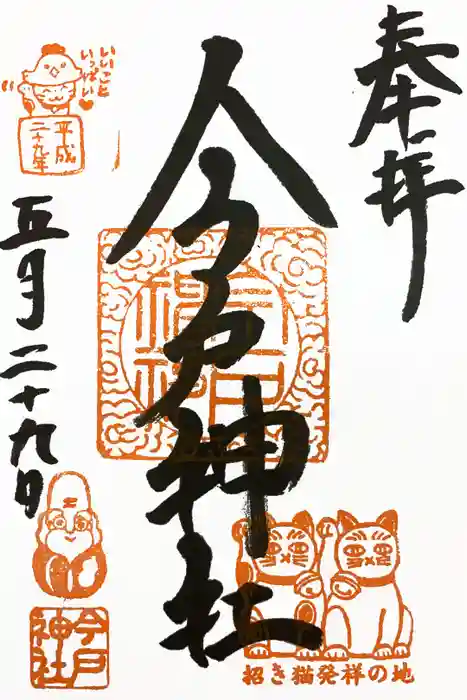 奉拝
今戸神社
いいこと
いっぱい
平成
二十九年
五月二十九日
今戸
神社
今戸
神社
招き猫発祥の地